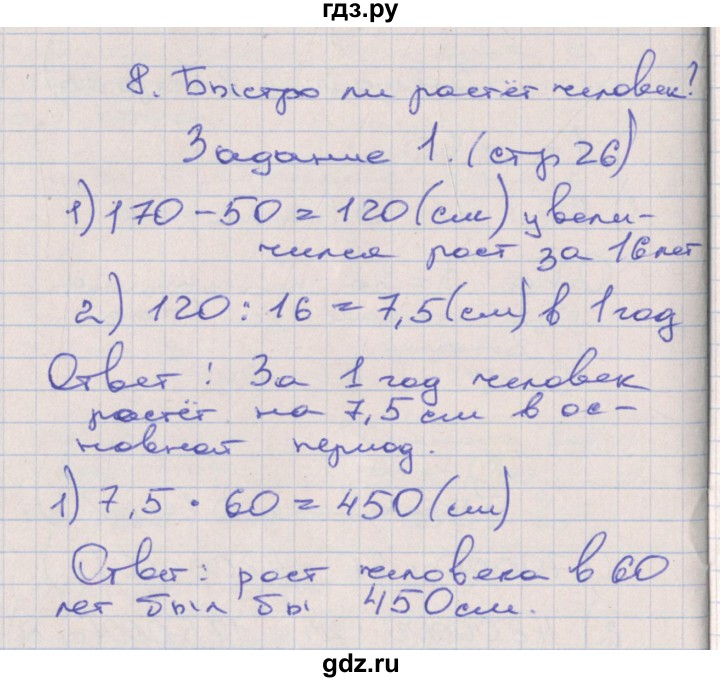 гдз.ру
8. Быстро ли растёт человек?
Задание 1. (стр 26)
1) 170 - 50 = 120 (см) увели-
чился рост за 16 лет
2) 120 : 16 = 7,5 (см) в 1 год
Ответ: За 1 год человек
растёт на 7,5 см в ос-
новной период.
1) 7,5 · 60 = 450 (см)
Ответ: рост человека в 60
лет был бы 450 см.
gdz.ru